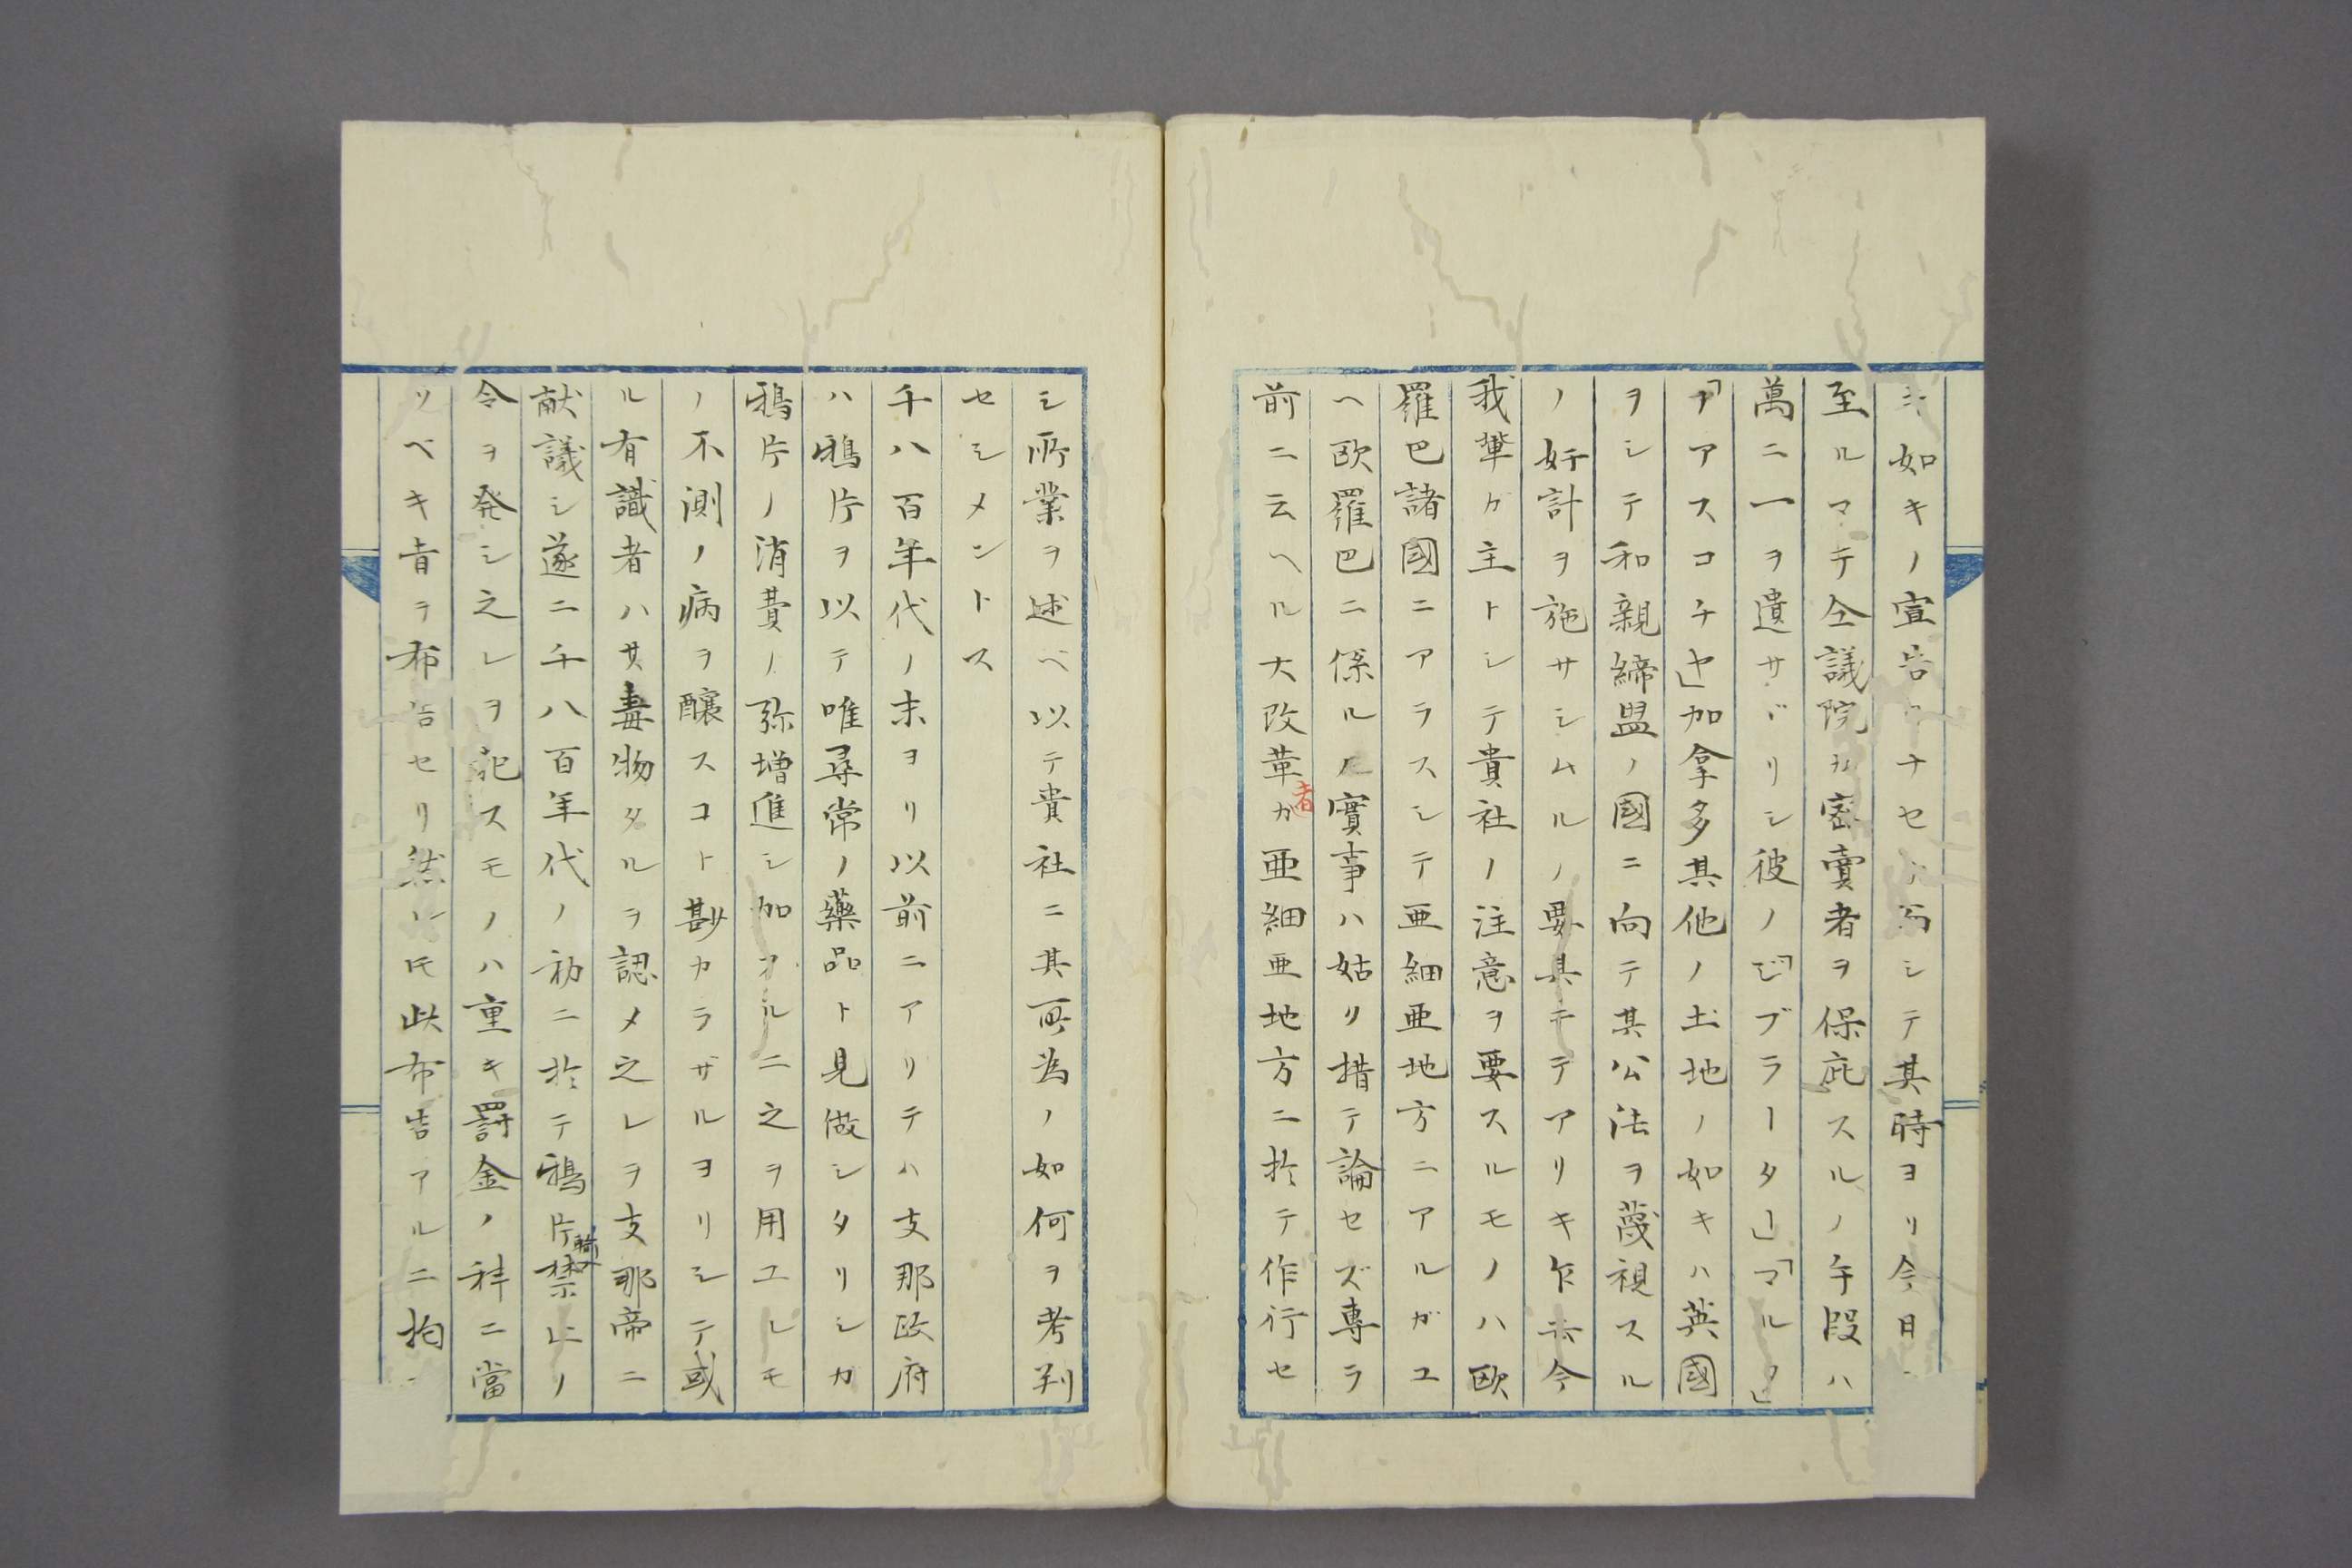 如キノ宣告ヲナセリ而シテ其時ヨリ今日
至ルマテ仝議院ガ密賣者ヲ保庇スルノ手段ハ
萬ニ一ヲ遺サヾリシ彼ノ「ジブラータ」「マルタ」
「アアスコチヤ」加拿多其他ノ土地ノ如キハ英國
ヲシテ和親締盟ノ國ニ向テ其公法ヲ蔑視スル
ノ奸計ヲ施サシムルノ要具ニテアリキ乍去今
我輩ガ主トシテ貴社ノ注意ヲ要スルモノハ欧
羅巴諸國ニアラスシテ亜細亜地方ニアルガユ
ヘ欧羅巴ニ係ル実事ハ姑リ措テ論セズ專ラ
前ニ云ヘル大改革者カ亜細亜地方ニ於テ作行セ
シ所業ヲ述ベ以テ貴社ニ其所為ノ如何ヲ考判
セシメントス
千八百年代ノ末ヨリ以前ニアリテハ支那政府
ハ鴉片ヲ以テ唯尋常ノ藥品ト見做シタリシカ
鴉片ノ消費ノ弥増進シ加フルニ之ヲ用ユレモ
ノ不測ノ病ヲ醸スコト尠カラザルヨリシテ或
ル有識者ハ其毒物タルヲ認メ之レヲ支那帝ニ
献議シ遂ニ千八百年代ノ初ニ於テ鴉片輸入禁止ノ
令ヲ発シ之レヲ犯スモノハ重キ罰金ノ科ニ當
ルベキ旨ヲ布告セリ然レ𪜈此布告アルニ拘